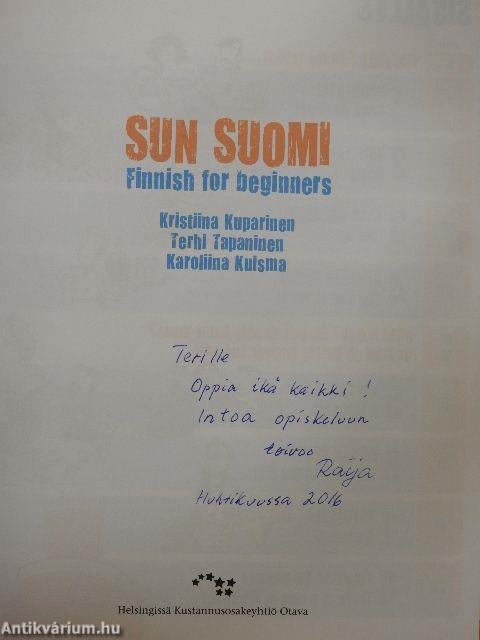 SUN SUOMI
Finnish for beginners
Kristiina Kuparinen
Terhi Tapaninen
Karoliina Kuisma
Terille
Oppia ikä kaikki !
Intoa opiskeluun
toivoo
Raija
Huhtikuussa 2016
Helsingissä Kustannusosakeyhtiö Otava
Antikvárium.hu